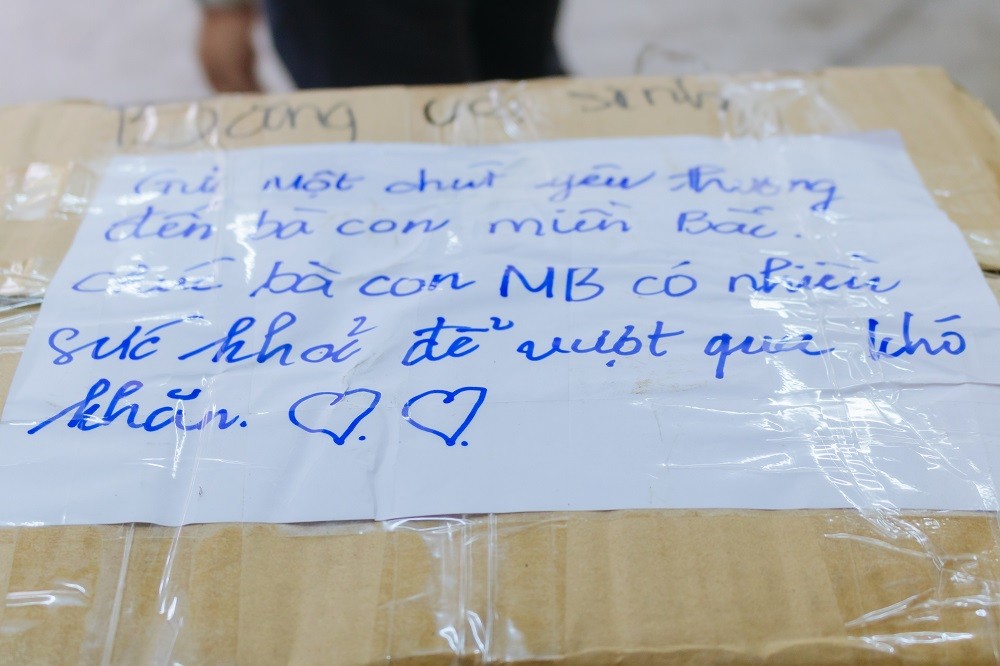 Băng vệ sinh
Gửi một chút yêu thương
đến bà con miền Bắc.
Chúc bà con MB có nhiều
sức khoẻ để vượt qua khó
khăn.